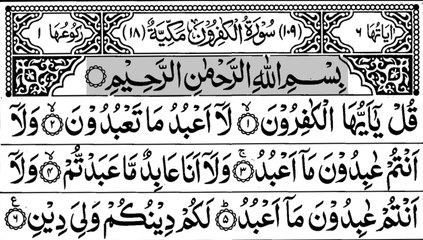 اٰیَاتُهَا ۶ (۱۰۹) سُوْرَةُ الْكٰفِرُوْنَ مَكِّیَّةٌ (۱۸) رُكُوْعُهَا ۱
بِسْمِ اللّٰهِ الرَّحْمٰنِ الرَّحِیْمِ
قُلْ یٰۤاَیُّهَا الْكٰفِرُوْنَ ۙ﴿۱﴾ لَاۤ اَعْبُدُ مَا تَعْبُدُوْنَ ۙ﴿۲﴾ وَلَاۤ
اَنْتُمْ عٰبِدُوْنَ مَاۤ اَعْبُدُ ۚ﴿۳﴾ وَلَاۤ اَنَا عَابِدٌ مَّا عَبَدْتُّمْ ۙ﴿۴﴾ وَلَاۤ
اَنْتُمْ عٰبِدُوْنَ مَاۤ اَعْبُدُ ؕ﴿۵﴾ لَكُمْ دِیْنُكُمْ وَلِیَ دِیْنِ ﴿۶﴾ ع